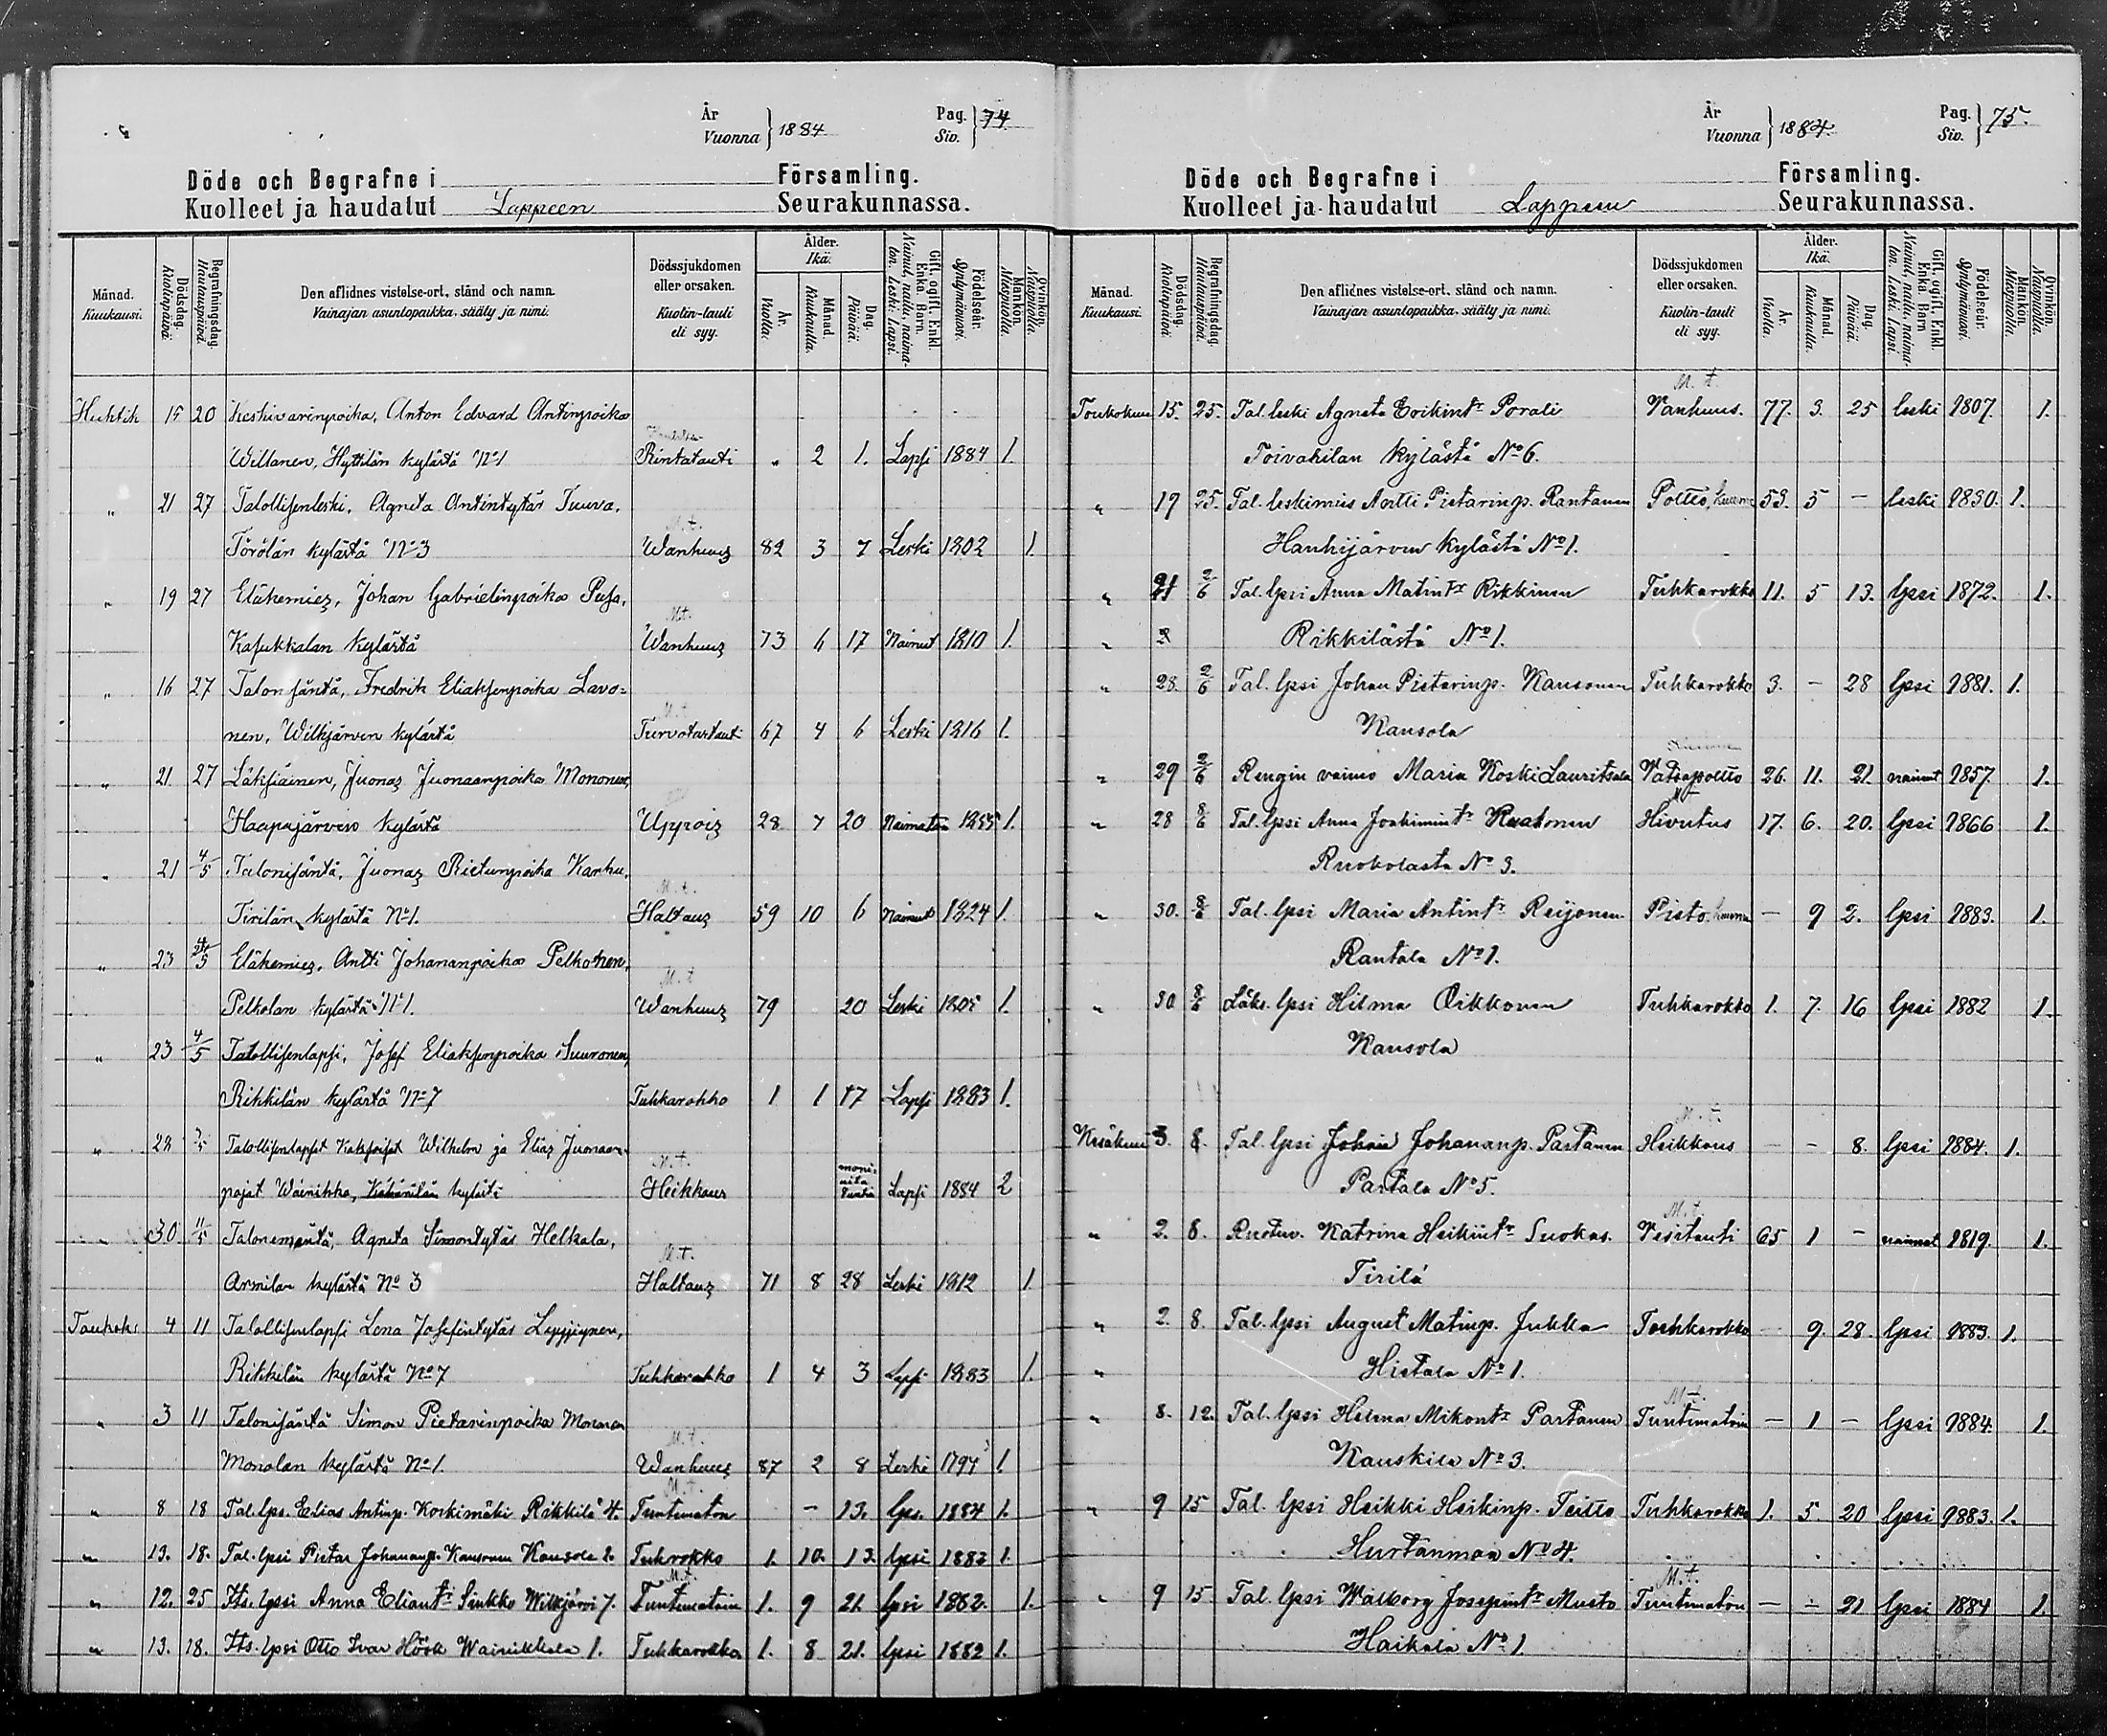 År
Vuonna } 1884
Pag.
Siv. } 74
Döde och Begrafne i Församling.
Kuolleet ja haudatut Lappeen Seurakunnassa.
Månad. Kuukausi.
Dödsdag. Kuolinpäivä.
Begrafningsdag. Hautauspäivä.
Den aflidnes vistelse-ort, stånd och namn.
Vainajan asuntopaikka, sääty ja nimi.
Dödssjukdomen eller orsaken.
Kuolin-tauti eli syy.
Ålder. Ikä.
År. Vuotta.
Månad. Kuukautta.
Dag. Päivää.
Gift, ogift, Enkl. Enka, Barn.
Nainut, naitu, naimaton. Leski. Lapsi.
Födelseår. Syntymävuosi.
Mankön. Miespuolia.
Qvinkön. Naispuolia.
Huhtik 15 20 Keskivarinpoika, Anton Edvard Antinpoika
Willanen, Hyttilän kylästä No 1 Rintatauti " 2 1. Lapsi 1884 1.
" 21 27 Talollisenleski, Agneta Antintytär Tuuva,
M. t.
Törölän kylästä No 3 Wanhuus 82 3 7 Leski 1802 1.
" 19 27 Eläkemies, Johan Gabrielinpoika Pusa,
M. t.
Kasukkalan kylästä Wanhuus 73 6 17 Nainut 1810 1.
" 16 27 Talonisäntä, Fredrik Eliaksenpoika Lavo=
M. t.
nen, Wilkjärven kylästä Turvotustauti 67 4 6 Leski 1816 1.
" 21 27 Läksiäinen, Juonas Juonaanpoika Mononen,
Haapajärven kylästä Uppois 28 7 20 Naimaton 1855 1.
" 21 4/5 Talonisäntä, Juonas Rietunpoika Karhu,
M. t.
Tirilän kylästä No 1. Haltaus 59 10 6 Nainut 1824 1.
" 23 4/5 Eläkemies, Antti Johananpoika Pelkonen,
M. t
Pelkolan kylästä No 1. Wanhuus 79 20 Leski 1805 1.
" 23 4/5 Talollisenlapsi, Josef Eliaksenpoika Suuronen,
Rikkilän kylästä No 7 Tuhkarokko 1 1 17 Lapsi 1883 1.
" 28 Talollisenlapset Kaksoiset Wilhelm ja Elias Juonaan
M. t.
pojat Wainikka, kylästä Heikkous moniaita tuntia Lapsi 1884 2
" 30 11/5 Talonemäntä, Agneta Simontytär Helkala,
M. t.
Armilan kylästä No 3 Haltaus 71 8 28 Leski 1812 1
Toukok: 4 11 Talollisenlapsi Lena Josefintytär
Rikkilän kylästä No 7 Tuhkarokko 1 4 3 Lapsi 1883 1.
" 3 11 Talonisäntä Simon Pietarinpoika Mononen
M. t.
Monolan kylästä No 1. Wanhuus 87 2 8 Leski 1797 1.
M. t.
" 8 18 Tal. lps. Elias Antinp. Koskimäki Rikkilä 4. Tuntematon – 13. lps. 1884 1.
" 13. 18. Tal. lpsi Pietar Johananp. Kansonen Kansola 2. Tuhrokko 1. 10. 13. lpsi 1882 1.
M. t.
" 12. 25 Its. lpsi Anna Eliantr Sinkko Wilkjärvi 7. Tuntematoin 1. 9 21. lpsi 1882. 1.
" 13. 18. Its. lpsi Otto Ivar Höök Wainikkala 1. Tuhkarokko 1. 8 21. lpsi 1882 1.
År
Vuonna } 1884.
Pag.
Siv. } 75.
Döde och Begrafne i Församling.
Kuolleet ja haudatut Lappeen Seurakunnassa.
Månad. Kuukausi.
Dödsdag. Kuolinpäivä.
Begrafningsdag. Hautauspäivä.
Den aflidnes vistelse-ort, stånd och namn.
Vainajan asuntopaikka, sääty ja nimi.
Dödssjukdomen eller orsaken.
Kuolin-tauti eli syy.
Ålder. Ikä.
År. Vuotta.
Månad. Kuukautta.
Dag. Päivää.
Gift, ogift, Enkl. Enka, Barn
Nainut, naitu, naimaton. Leski. Lapsi.
Födelseår. Syntymävuosi.
Mankön. Miespuolia.
Qvinkön. Naispuolia.
M. t.
Toukokuu 15. 25. Tal. leski Agneta Eoikintr Porali Vanhuus. 77. 3. 25 leski 1807. 1.
Toivakilan kylästä No 6.
" 19 25. Tal. leskimies Antti Pietarinp. Rantanen Poltto kuume 53. 5 – leski 1830. 1.
Hanhijärven kylästä No 1.
" 21 2/6 Tal. lpsi Anna Matintr Rikkinen Tuhkarokko 11. 5 13. lpsi 1872. 1.
" Rikkilästä No 1.
" 28. 2/6 Tal. lpsi Johan Pietarinp. Kansonen Tuhkarokko 3. – 28 lpsi 1881. 1.
Kansola
" 29 2/6 Rengin vaimo Maria Koski Lauritsala Vatsapoltto 26. 11. 21. nainut 1857. 1.
" 28 8/6 Tal. lpsi Anna Joakimintr Hivutus 17. 6. 20. lpsi 1866 1.
Ruokolasta No 3.
" 30. 8/6 Tal. lpsi Maria Antintr Reijonen Pisto kuume – 9 2. lpsi 1883. 1.
Rantala No 1.
" 30 8/6 Läks. lpsi Hilma Oikkonen Tuhkarokko 1. 7. 16 lpsi 1882 1.
Kansola
M. t.
Kesäkuu 3. 8. Tal. lpsi Johan Johananp. Partanen Heikkous – – 8. lpsi 1884. 1.
Partala No 5.
M. t.
" 2. 8. Ruotuv. Katrina Heikintr Suokas. Vesitauti 65 1 – nainut 1819. 1.
Tirilä
" 2. 8. Tal. lpsi August Matinp. Jukka Tuhkarokko – 9. 28. lpsi 1883. 1.
" Hietala No 1.
M. t.
" 8. 12. Tal. lpsi Helma Mikontr Partanen Tuntematoin – 1 – lpsi 1884. 1.
Kauskila No 3.
" 9 15 Tal. lpsi Heikki Heikinp. Teitto Tuhkarokko 1. 5 20 lpsi 1883. 1.
Hurtanmaa No 4.
M. t.
" 9 15 Tal. lpsi Walborg Josepintr Musto Tuntematon – – 21 lpsi 1884 1.
Haikala No 1.